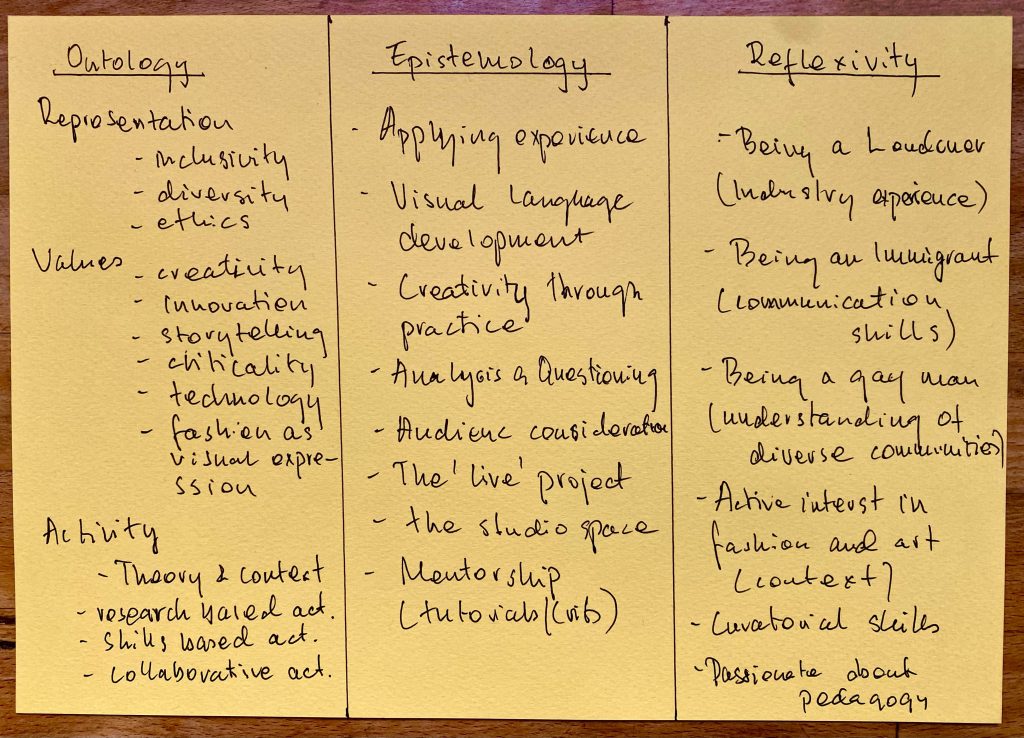 Ontology
Representation
- inclusivity
- diversity
- ethics
Values
- creativity
- innovation
- storytelling
- criticality
- technology
- fashion as
visual expre-
ssion
Activity
- Theory & context
- research based act.
- skills based act.
- collaborative act.
Epistemology
- Applying experience
- Visual Language
development
- Creativity through
practice
- Analysis & Questioning
- Audienc consideration
- The 'live' project
- the studio space
- Mentorship
(tutorials/Crits)
Reflexivity
- Being a Londoner
(Industry experience)
- Being an Immigrant
(communication
skills)
- Being a gay man
(understanding of
diverse communities)
- Active interst in
fashion and art
(context)
- Curatorial skills
- Passionate about
pedagogy